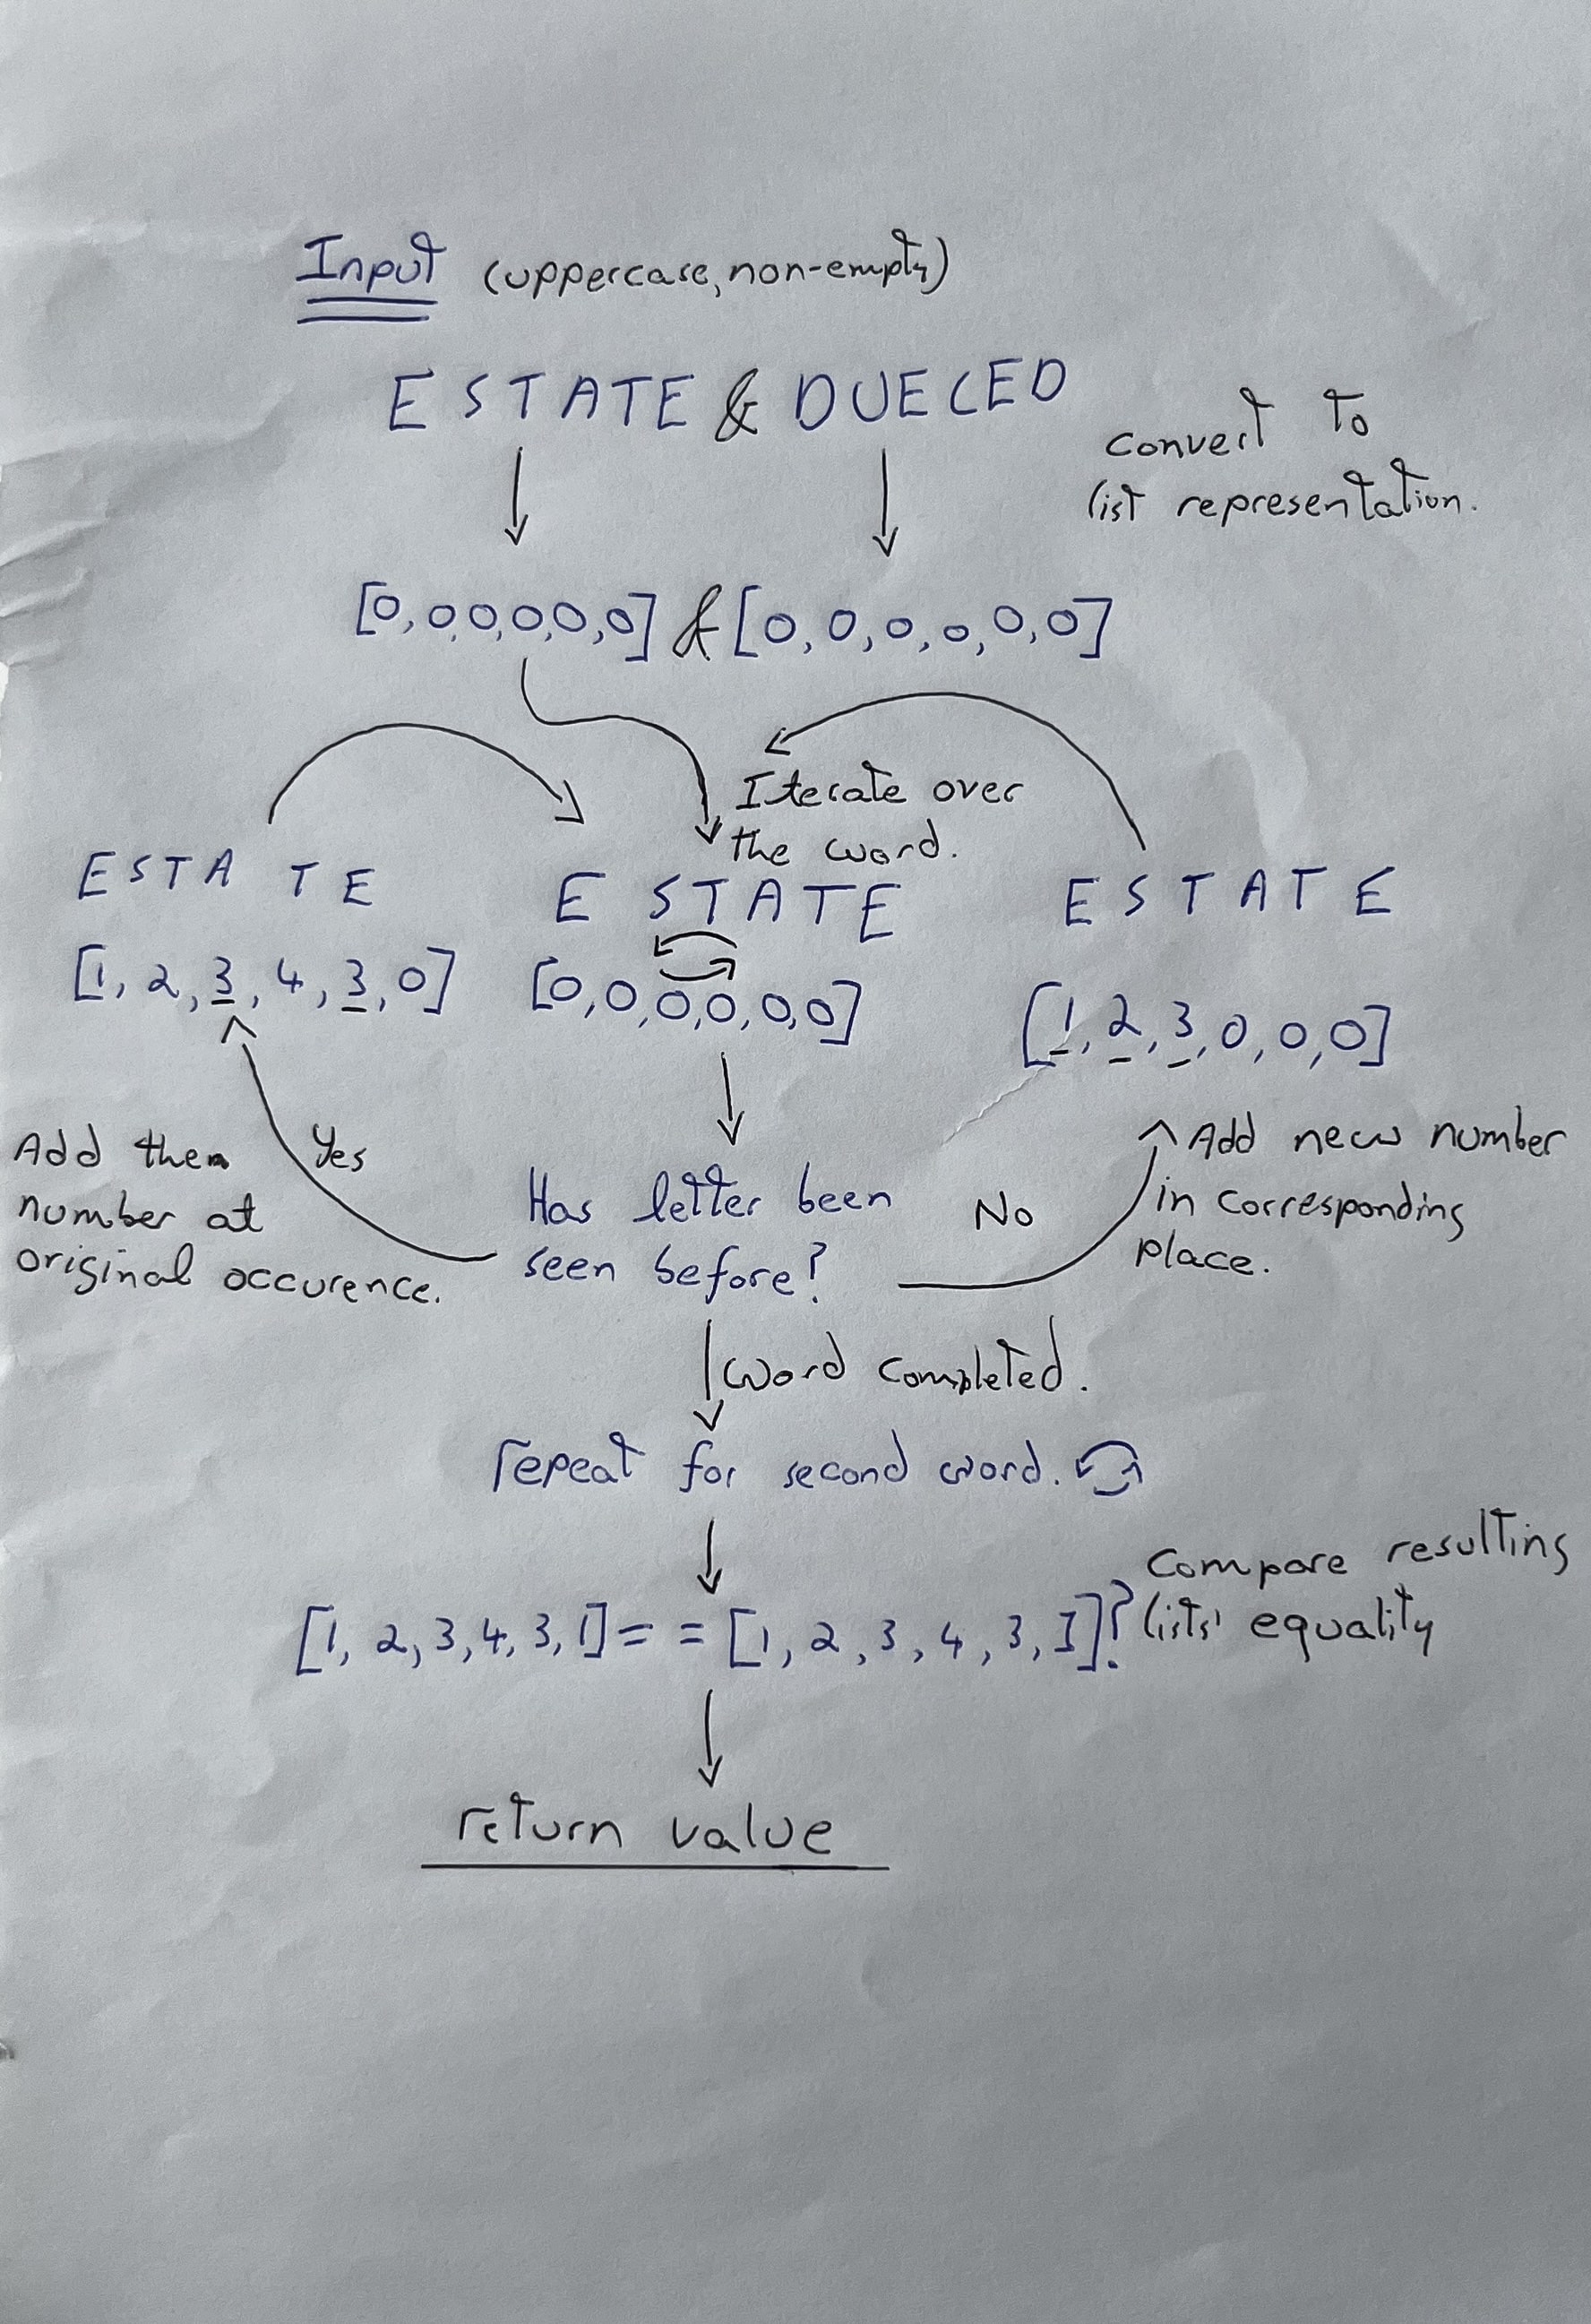 Input (uppercase, non-empty)
ESTATE & DUELED
convert to
list representation.
[0,0,0,0,0,0] & [0,0,0,0,0,0]
Iterate over
the word.
ESTATE
[1, 2, 3, 4, 3, 0]
ESTATE
[0,0,0,0,0,0]
ESTATE
[1, 2, 3, 0, 0, 0]
Add then
number at
original occurence.
Yes
Has letter been
seen before?
No
Add new number
in corresponding
place.
word completed.
repeat for second word.
[1, 2, 3, 4, 3, 1] == [1, 2, 3, 4, 3, 1]?
Compare resulting
lists' equality
return value